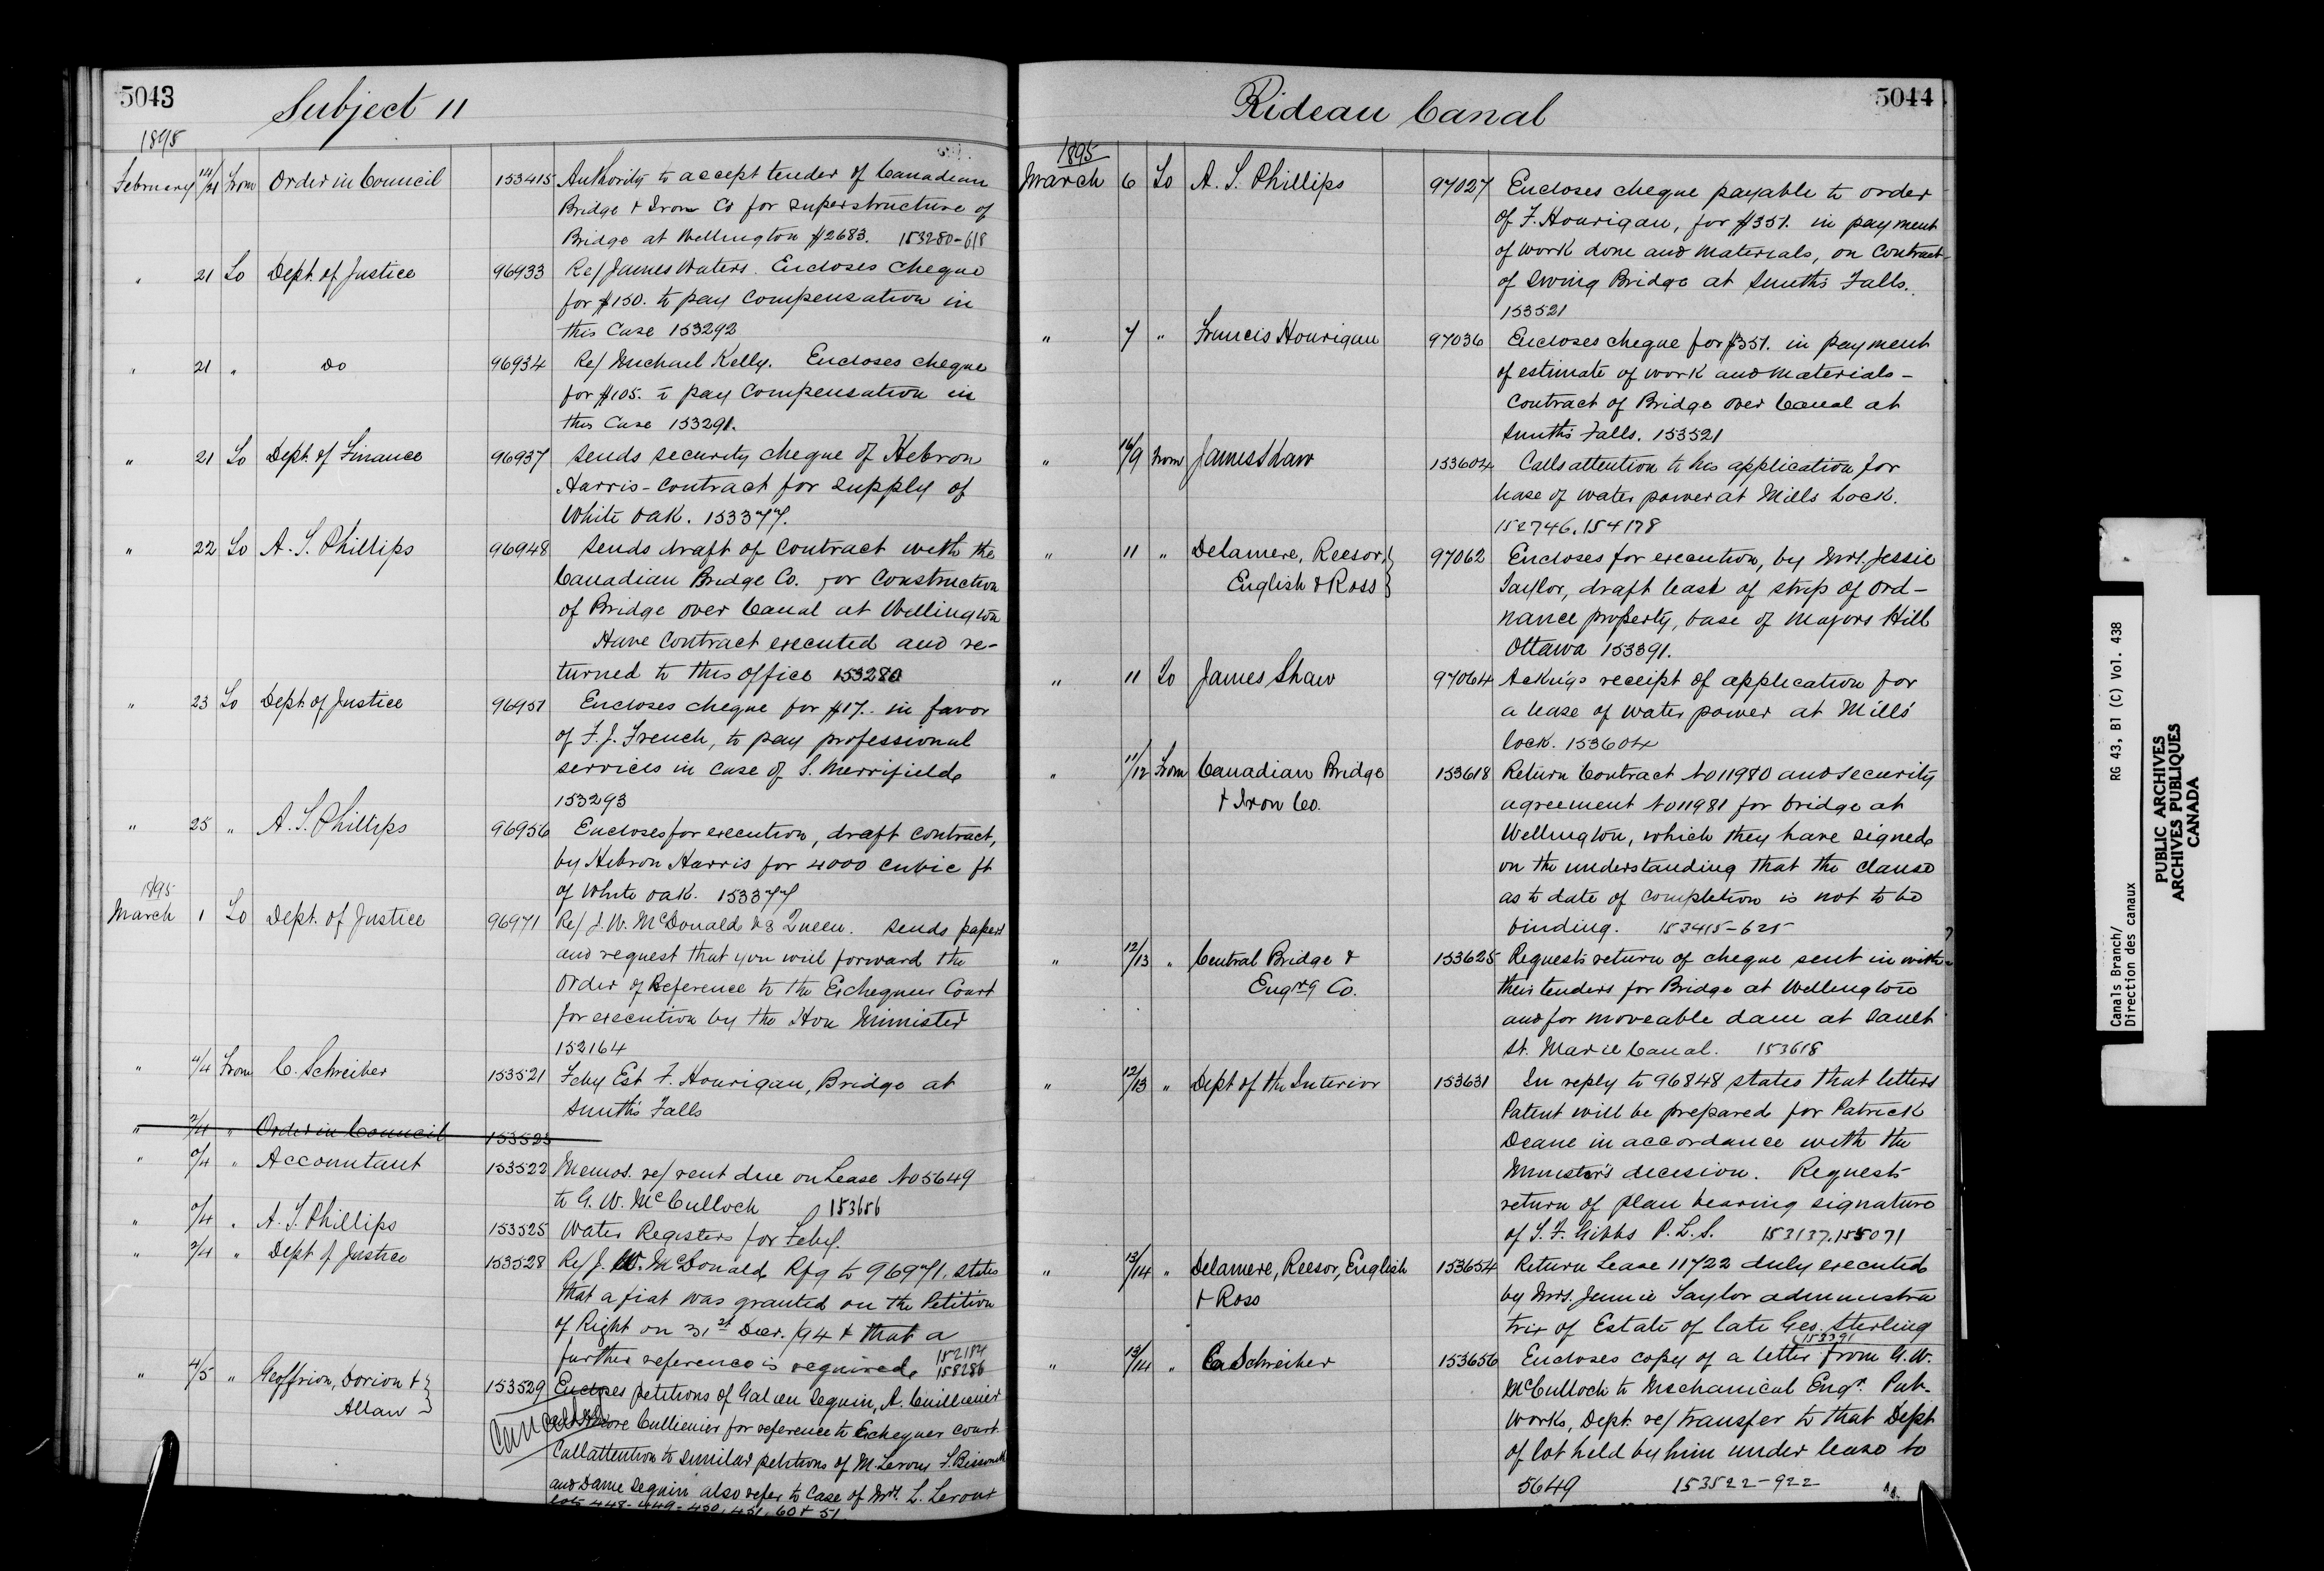 5043
Subject 11
1895
February 14/21 From Order in Council 153415 Authority to accept tender of Canadian
Bridge & Iron Co for superstructure of
Bridge at Wellington $2683. 153280-618
" 21 To Dept. of Justice 96933 Re/ James Waters. Encloses cheque
for $150. to pay compensation in
this Case 153292
" 21 " Do 96934 Re/ Michael Kelly. Encloses cheque
for $105. to pay Compensation in
this Case 153291.
" 21 To Dept. of Finance 96937 Sends security cheque of Hebron
Harris - Contract for supply of
White Oak. 153377.
" 22 To A. S. Phillips 96948 Sends draft of Contract with the
Canadian Bridge Co. for Construction
of Bridge over Canal at Wellington
Have Contract executed and re-
turned to this office 153280
" 23 To Dept of Justice 96951 Encloses cheque for $17.. in favor
of F. J. French, to pay professional
services in case of S. Merrifield
153293
" 25 " A. S. Phillips 96956 Encloses for execution, draft contract,
by Hebron Harris for 4000 cubic ft
of White Oak. 153377
1895
March 1 To Dept. of Justice 96971 Re/ J. W. McDonald vs Queen. Sends papers
and request that you will forward the
Order of Reference to the Exchequer Court
for execution by the Hon Minister
152164
" 4/4 From C. Schreiber 153521 Feby Est F. Hourigan, Bridge at
Smiths Falls
" 2/4 " Order in Council 153523
" 0/4 " Accountant 153522 Memos. re/ rent due on Lease No 5649
to G. W. McCulloch 153656
" 0/4 " A. S. Phillips 153525 Water Registers for Feby.
" 2/4 " Dept of Justice 153528 Re/ J. W. McDonald Rfg to 96971. States
that a fiat was granted on the Petition
of Right on 31st Decr. /94 & that a
further reference is required 152184
158286
" 4/5 " Geoffrion, Dorion & 153529 Encloses petitions of Galien Seguin, A. Cuillierier
Allan
Cancelled
Cullierier for reference to Exchequer Court
Call attention to similar petitions of M. Leroux F. Bissonett
and Dame Seguin also refer to Case of Mrs. L. Leroux
448-449-450, 451, 60 & 51
5044
Rideau Canal
1895
March 6 To A. S. Phillips 97027 Encloses cheque payable to order
of F. Hourigan, for $351. in payment
of work done and materials, on Contract
of Swing Bridge at Smiths Falls.
153521
" 7 " Francis Hourigan 97036 Encloses cheque for $351. in payment
of estimate of work and materials -
Contract of Bridge over Canal at
Smiths Falls. 153521
" 16/9 From James Shaw 153604 Calls attention to his application for
lease of water power at Mills Lock.
152746. 154178
" 11 " Delamere, Reesor, 97062 Encloses for execution, by Mrs. Jessie
English & Ross
Taylor, draft lease of strip of ord-
nance property, base of Majors Hill
Ottawa 153391.
" 11 To James Shaw 97064 Ackn'gs receipt of application for
a lease of water power at Mills'
lock. 153604
" 11/12 From Canadian Bridge 153618 Return Contract No 11980 and security
& Iron Co.
agreement No 11981 for bridge at
Wellington, which they have signed
on the understanding that the clause
as to date of completion is not to be
binding. 153415-625
" 12/13 " Central Bridge & 153625 Requests return of cheque sent in with
Engr'g Co.
their tenders for Bridge at Wellington
and for moveable dam at Sault
St. Marie Canal. 153618
" 12/13 " Dept of the Interior 153631 In reply to 96848 states that letters
Patent will be prepared for Patrick
Deane in accordance with the
Minister's decision. Requests
return of plan bearing signature
of S. F. Gibbs P. L. S. 153137. 155071
" 13/14 " Delamere, Reesor, English 153654 Return Lease 11722 duly executed
& Ross
by Mrs. Jennie Taylor administra
trix of Estate of late Geo. Sterling
153391
" 13/14 " C. Schreiber 153656 Encloses copy of a letter from G. W.
McCulloch to Mechanical Engr. Pub-
Works, Dept. re/ transfer to that Dept
of lot held by him under lease to
5649 153522-922
Canals Branch/
Direction des canaux
RG 43, B1 (C) Vol. 438
PUBLIC ARCHIVES
ARCHIVES PUBLIQUES
CANADA